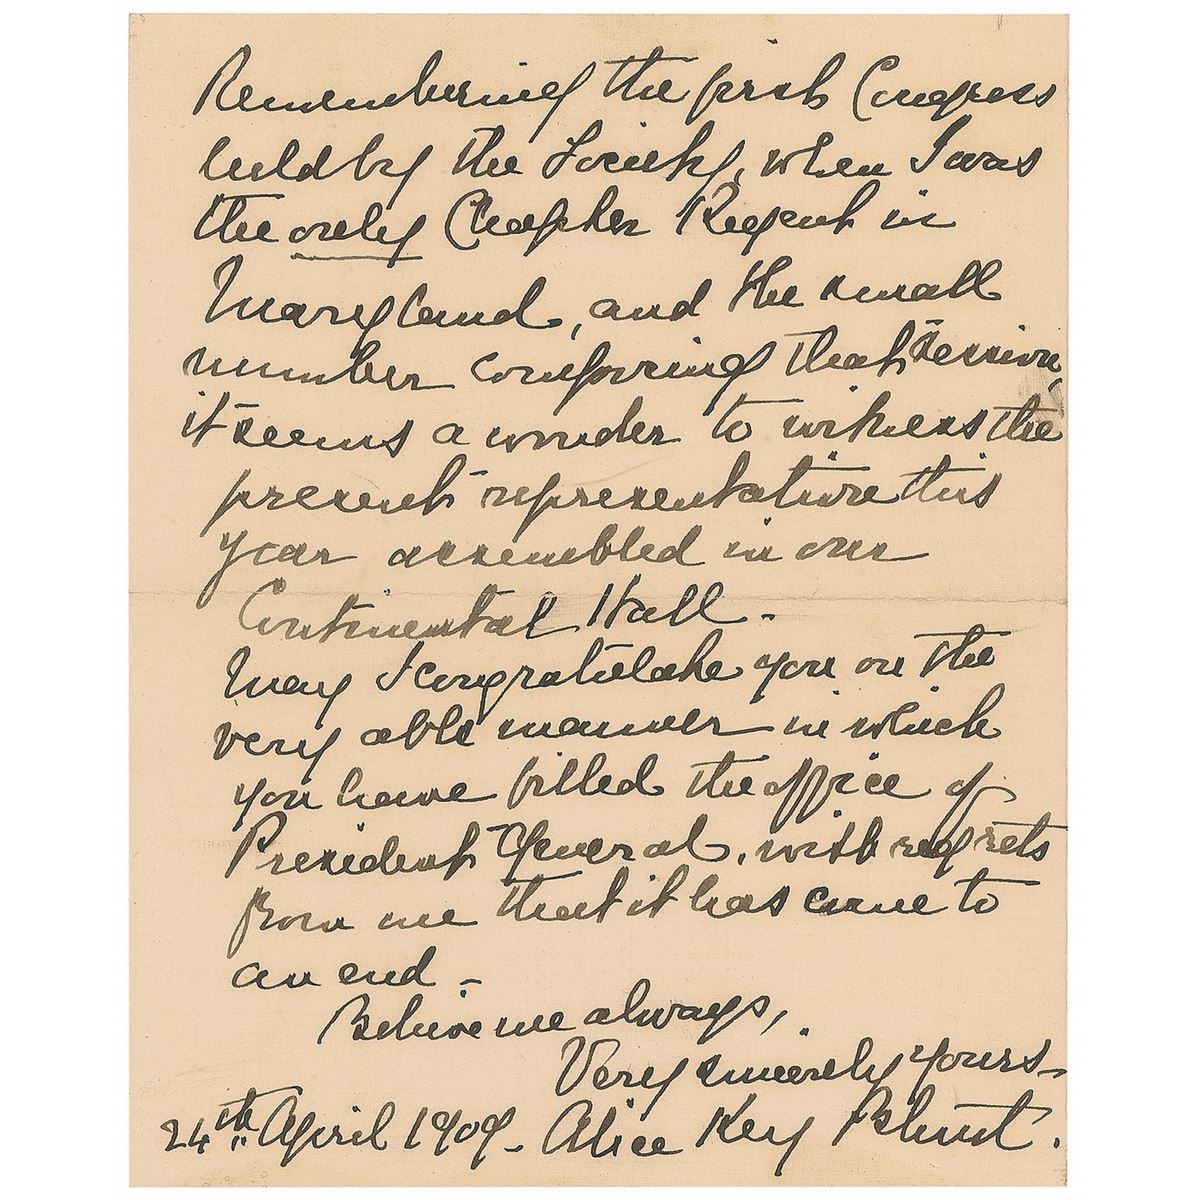 Remembering the first Congress
held by the Society, when I was
the only Chapter Regent in
Maryland, and the small
number comprising that session,
it seems a wonder to witness the
present representative this
year assembled in our
Continental Hall -
May I congratulate you on the
very able manner in which
you have filled the office of
President General, with regrets
from me that it has come to
an end -
Believe me always,
Very sincerely yours -
24th April 1909 - Alice Key Blunt.